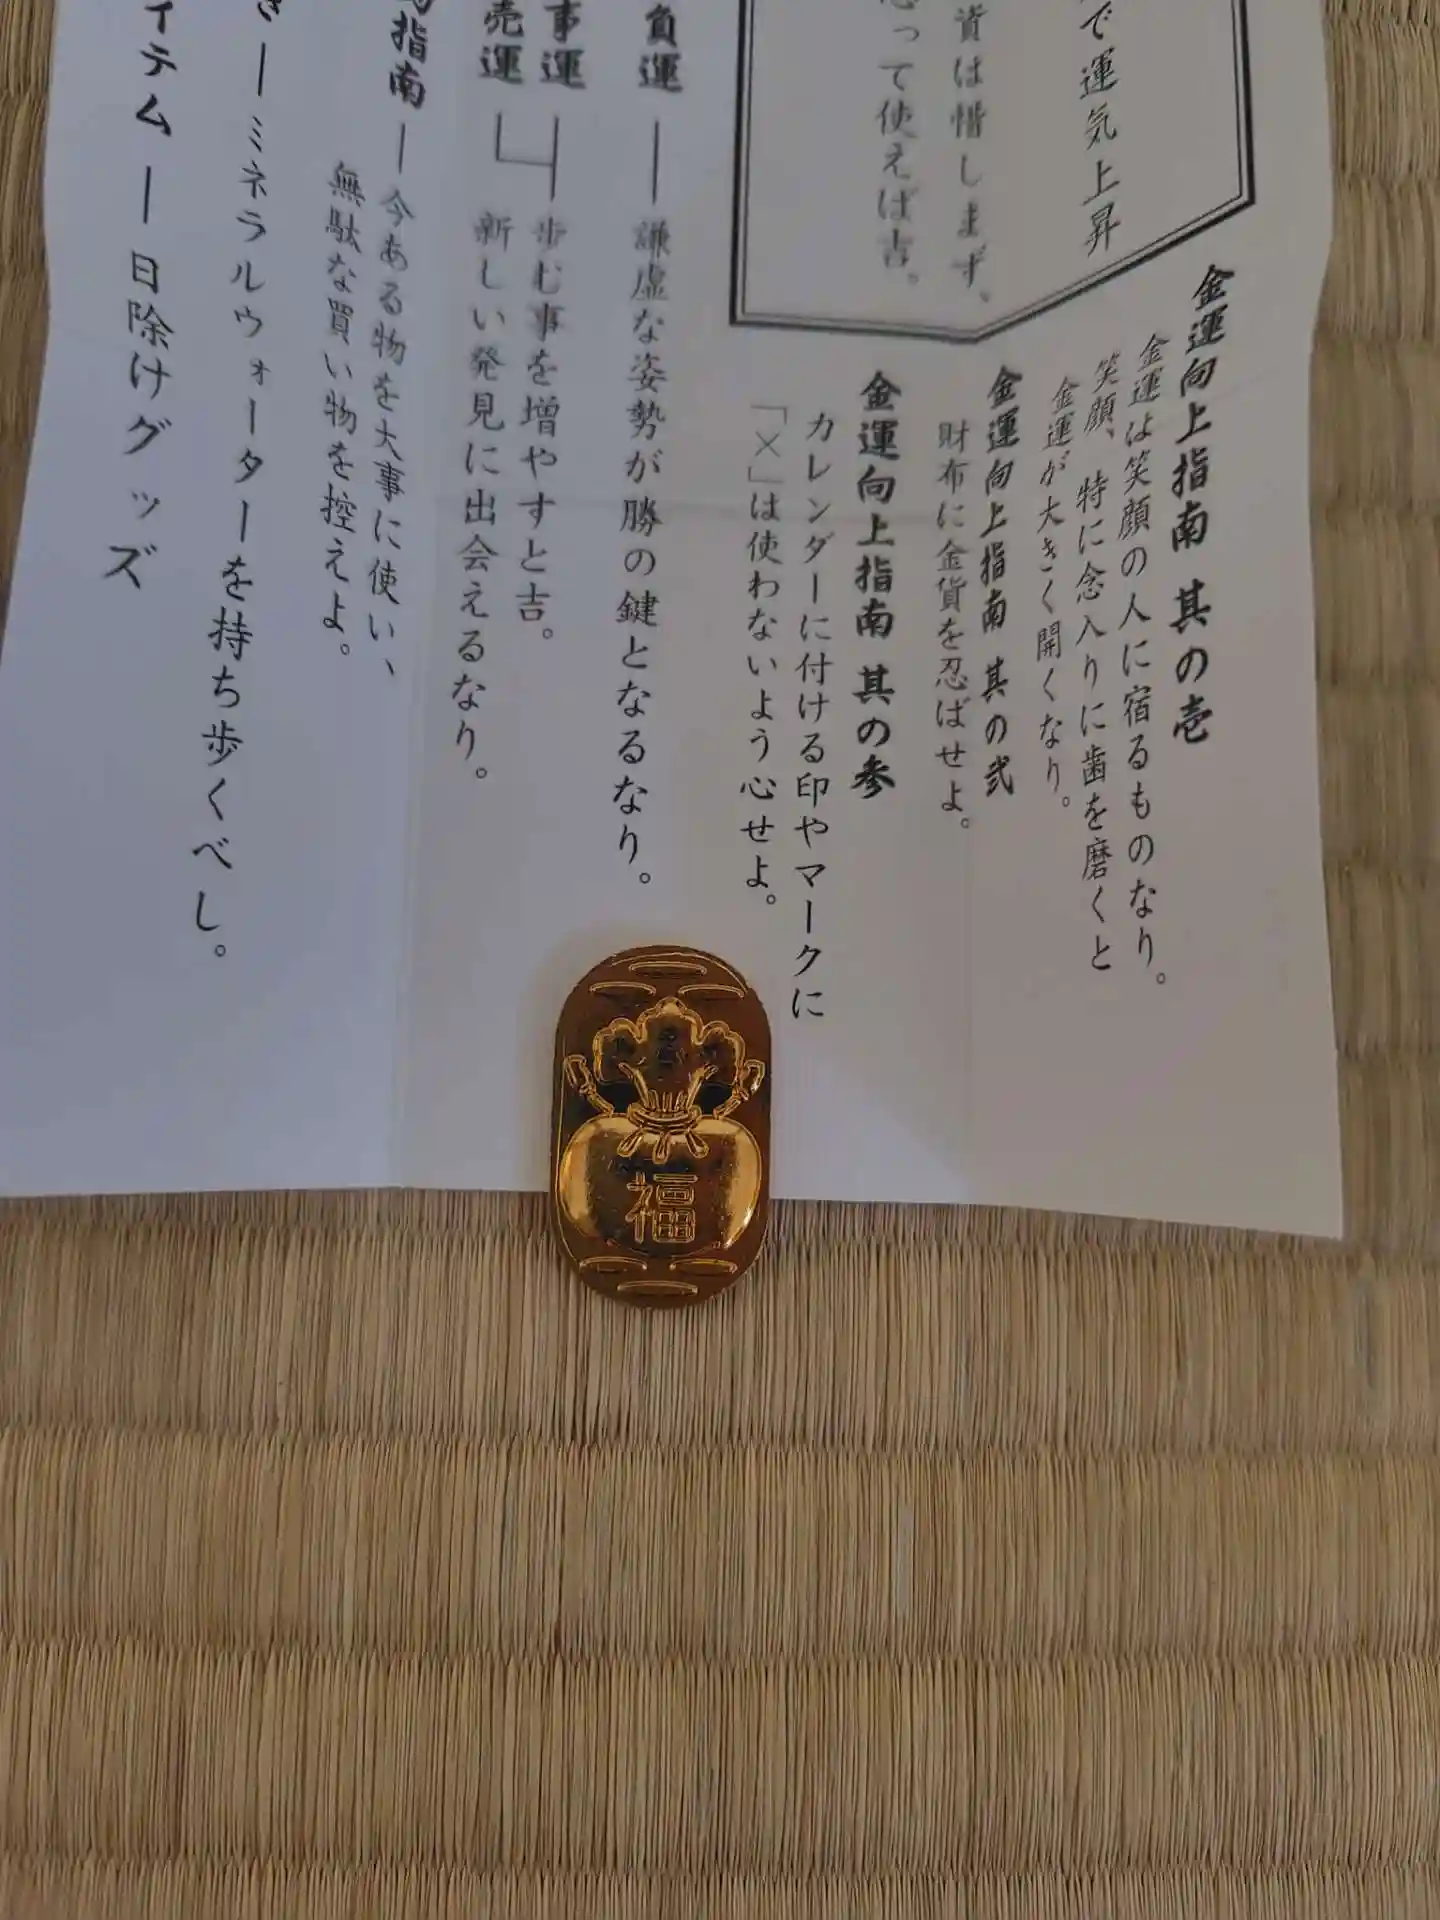 で運気上昇
資は惜しまず、
って使えば吉。
金運向上指南 其の壱
金運は笑顔の人に宿るものなり。
笑顔、特に念入りに歯を磨くと
金運が大きく開くなり。
金運向上指南 其の弐
財布に金貨を忍ばせよ。
金運向上指南 其の参
カレンダーに付ける印やマークに
「×」は使わないよう心せよ。
負運―謙虚な姿勢が勝の鍵となるなり。
事運
売運
歩む事を増やすと吉。
新しい発見に出会えるなり。
指南―今ある物を大事に使い、
無駄な買い物を控えよ。
き―ミネラルウォーターを持ち歩くべし。
イテム―日除けグッズ
福